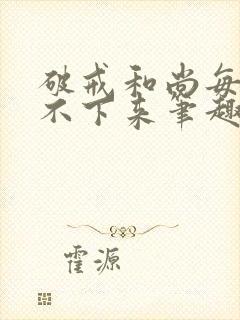 破戒和尚每
不下来笔趣
霍源